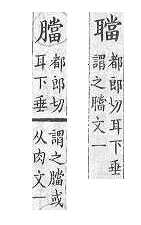 𦗴
都郎切耳下垂
謂之𦡁文一
𦡁
都郎切
耳下垂
謂之𦡁或
从肉文一